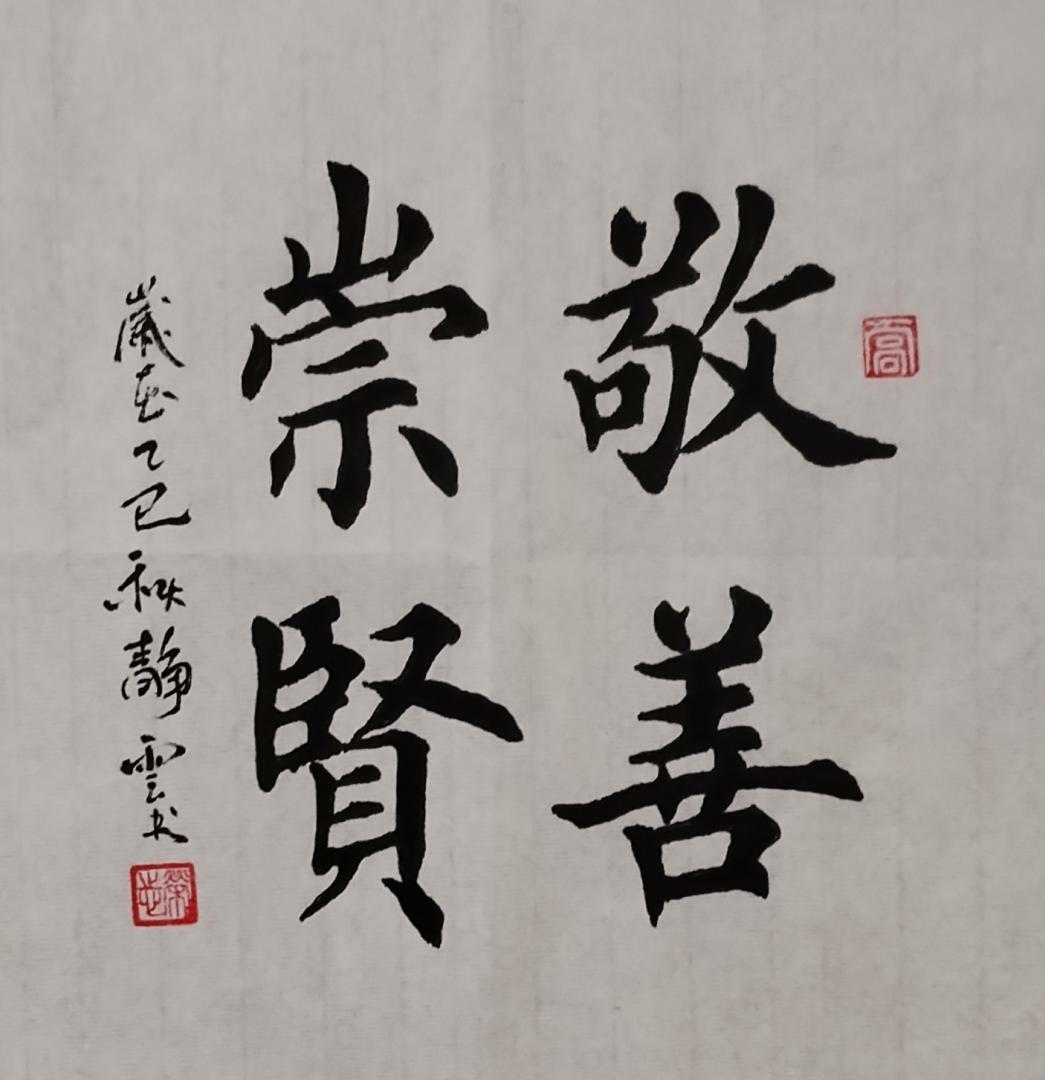 敬善
崇賢
歲在乙巳秋靜雲书